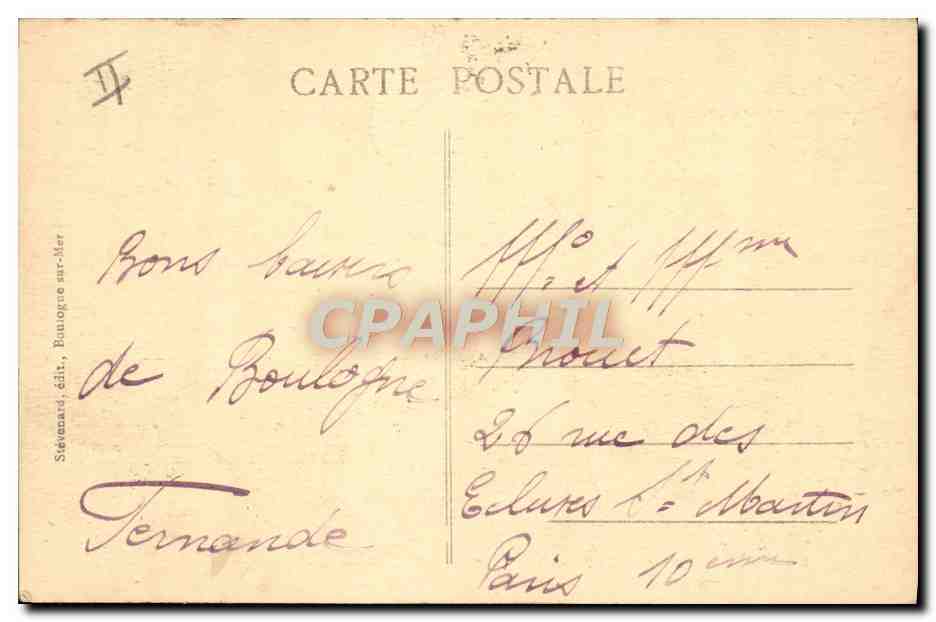 CARTE POSTALE
Bons baisers
de Boulogne
Fernande
Mr et Mme
26 rue des
Ecluses St Martin
Paris 10eme
Stévenard, édit., Boulogne sur-Mer
CPAPHIL
II